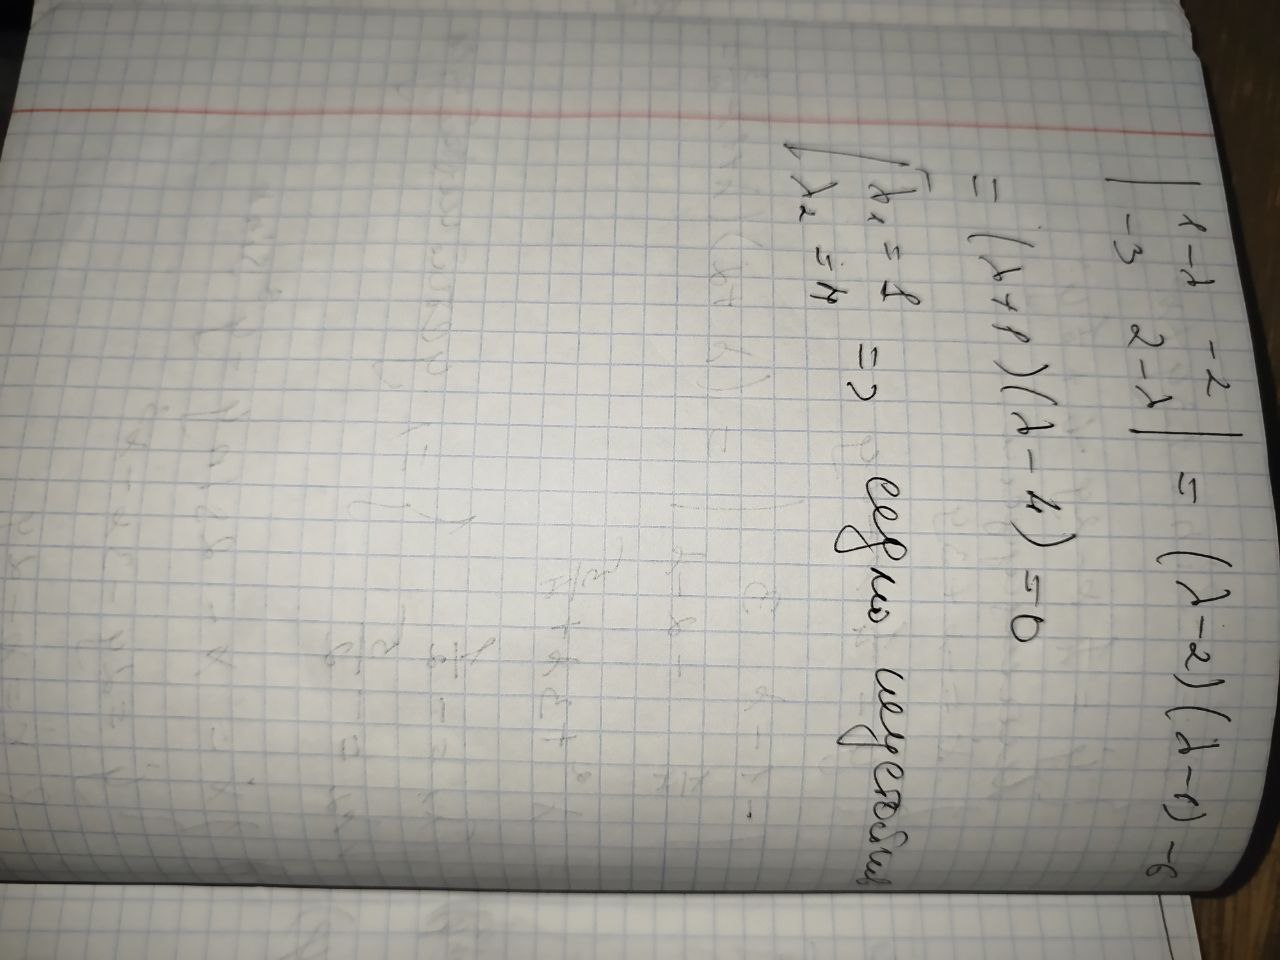 | 1-λ -2 |
| -3 2-λ | = (λ-2)(λ-1) -6
= (λ+1)(λ-4) =0
[ λ₁ = 1
λ₂ = 4 => седло неустойчив